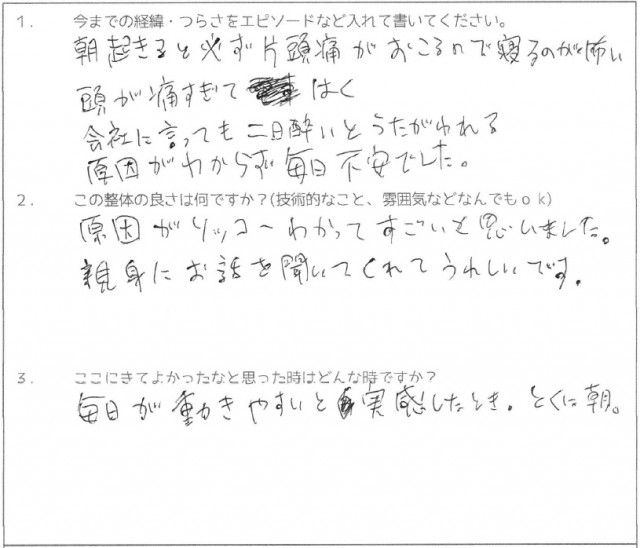 1. 今までの経緯・つらさをエピソードなど入れて書いてください。
朝起きると必ず片頭痛がおこるので寝るのが怖い
頭が痛すぎて はく
会社に言っても二日酔いとうたがわれる
原因がわからず毎日不安でした。
2. この整体の良さは何ですか?(技術的なこと、雰囲気などなんでもok)
原因がソッコーわかってすごいと思いました。
親身にお話を聞いてくれてうれしいです。
3. ここにきてよかったなと思った時はどんな時ですか?
毎日が動きやすいと実感したとき。とくに朝。